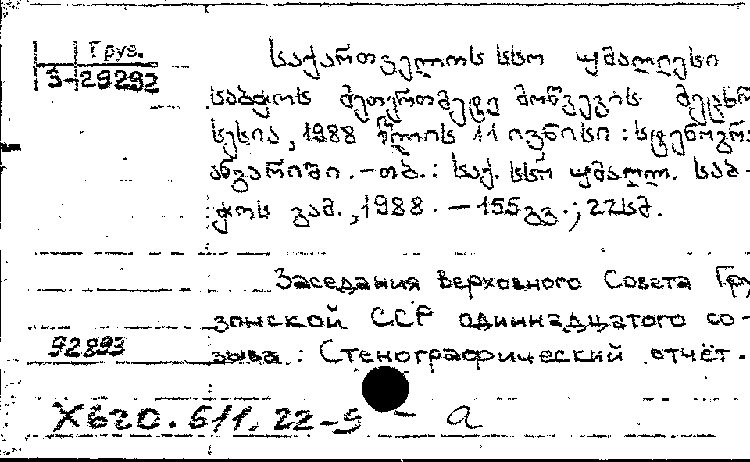 Груз.
3-29292
საქართველოს სსრ უმაღლესი
საბჭოს მეთერთმეტე მოწვევის მეცხრე
სესია, 1988 წლის 11 ივნისი : სტენოგრ.
ანგარიში. - თბ. : საქ. სსრ უმაღლ. საბ-
ჭოს გამ., 1988. - 155 გვ.; 22 სმ.
Заседания Верховного Совета Гру
зинской ССР одиннадцатого со-
зыва : Стенографический отчёт.
92893
X620.611.22-9 - а